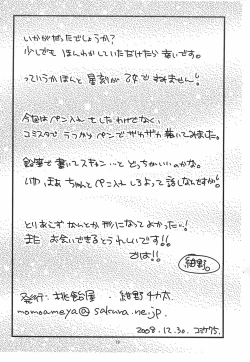 いかがだったでしょうか?
少しでも ほんわかしていただけたら 幸いです。
っていうかほんと 星刻が 3才ですみません!
今回は ペン入れ をしたわけでなく、
コミスタで うっかり ペンで ザカザカ 描いてみました。
鉛筆で 書いてスキャン…と どっちがいいのかな。
いや、まぁ ちゃんと ペン入れ しろよって 話なんですが!
とりあえず なんとか 形になって よかった…!
また お会いできると うれしいです!!
では!!
紺野。
発行・桃飴屋 ・ 紺野
momoameya@sakura.ne.jp
2008.12.30.